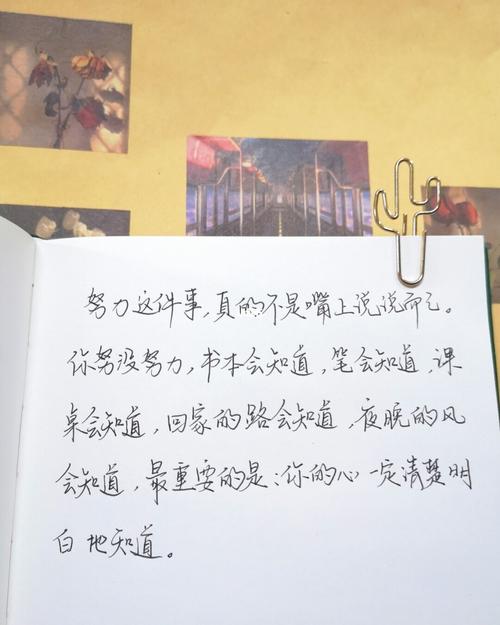 努力这件事,真的不是嘴上说说而已。
你努没努力,书本会知道,笔会知道,课
桌会知道,回家的路会知道,夜晚的风
会知道,最重要的是:你的心一定清楚明
白地知道。